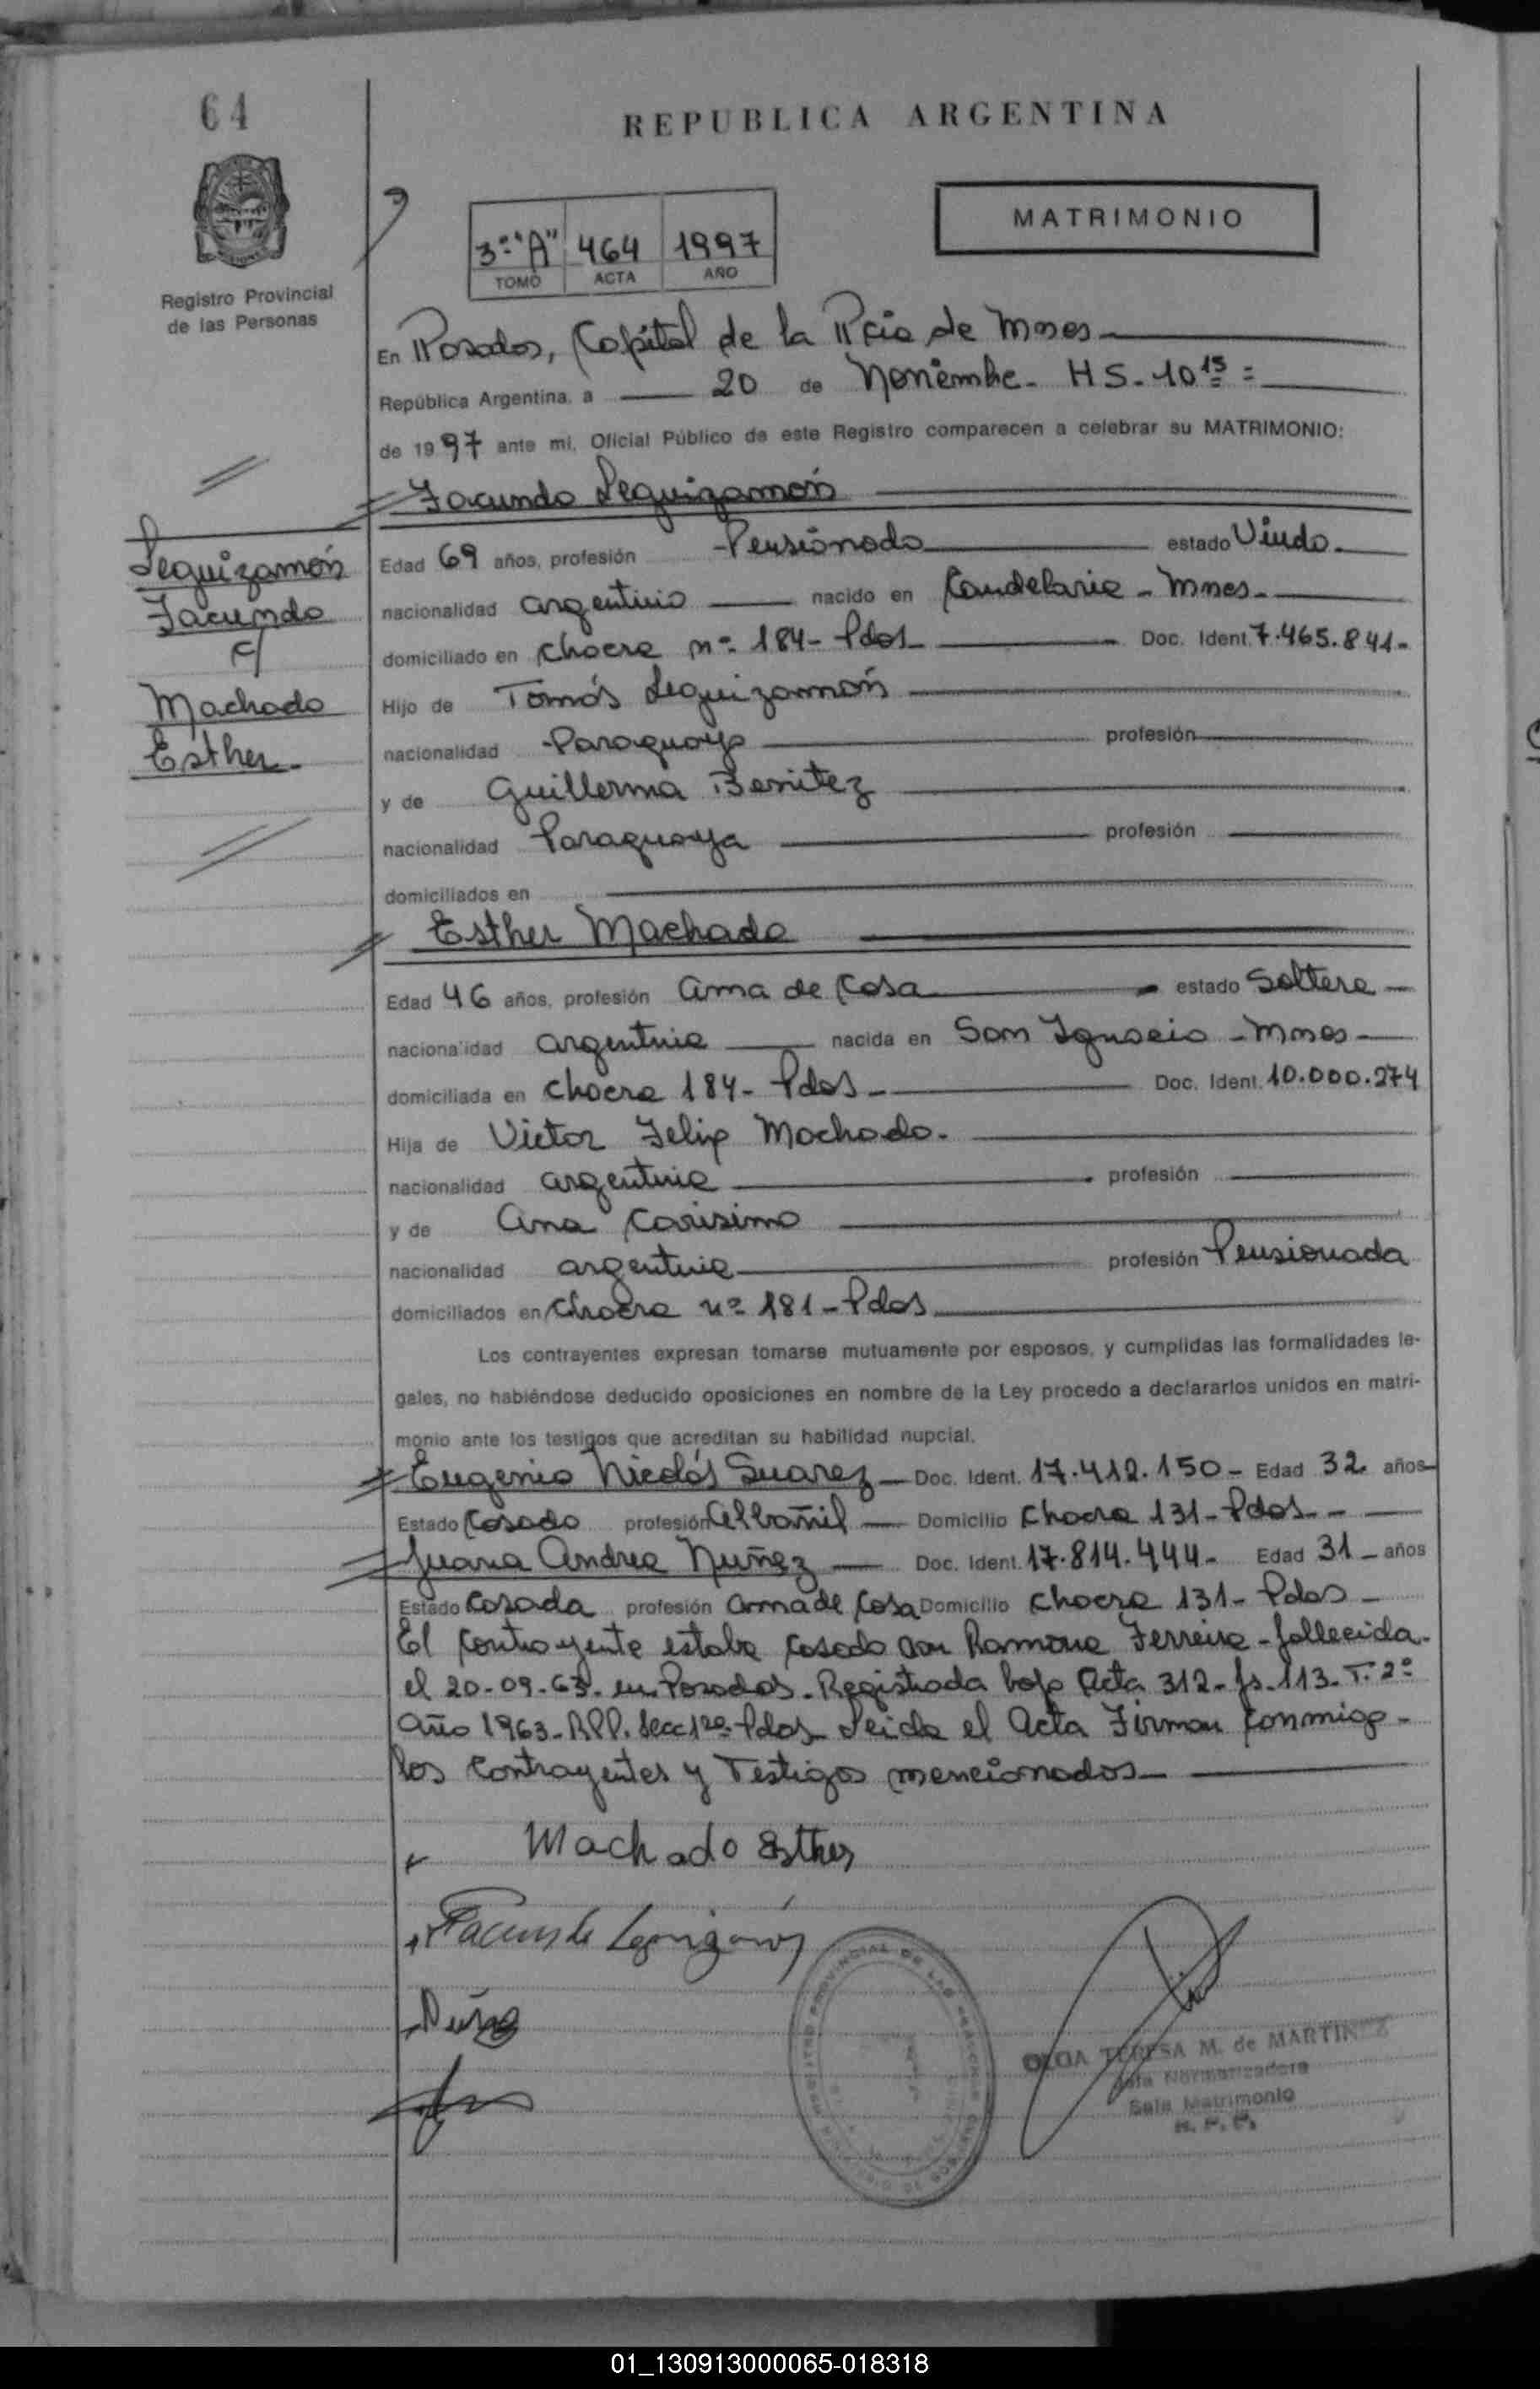 64
REPUBLICA ARGENTINA
MATRIMONIO
3º "A" 464 1997
TOMO ACTA AÑO
Registro Provincial
de las Personas
En Posadas, Capital de la Pcia de Mnes
República Argentina, a 20 de Noviembre. HS. 10 15 =
de 1997 ante mi, Oficial Público de este Registro comparecen a celebrar su MATRIMONIO:
Facundo Leguizamón
Leguizamón
Facundo
c/
Machado
Esther.
Edad 69 años, profesión Pensionado estado Viudo.
nacionalidad argentino nacido en Candelaria - Mnes.
domiciliado en chacra nº 184 - Pdas Doc. Ident. 7.465.841-
Hijo de Tomás Leguizamón
nacionalidad Paraguayo profesión
y de Guillerma Benitez
nacionalidad Paraguaya profesión
domiciliados en
Esther Machado
Edad 46 años, profesión ama de casa estado Soltera
nacionalidad argentina nacida en San Ignacio - Mnes
domiciliada en chacra 184 - Pdas - Doc. Ident. 10.000.274
Hija de Victor Felix Machado.
nacionalidad argentina profesión
y de Ana
nacionalidad argentina profesión Pensionada
domiciliados en chacra nº 181 - Pdas
Los contrayentes expresan tomarse mutuamente por esposos, y cumplidas las formalidades le-
gales, no habiéndose deducido oposiciones en nombre de la Ley procedo a declararlos unidos en matri-
monio ante los testigos que acreditan su habilidad nupcial.
Eugenio Nicolás Suarez Doc. Ident. 17.412.150 - Edad 32 años
Estado Casado profesión albañil Domicilio Chacra 131 - Pdas -
Juana Andrea Nuñez Doc. Ident. 17.814.444 - Edad 31 años
Estado Casada profesión ama de casa Domicilio chacra 131 - Pdas -
El contrayente estaba casado con Ramona Ferreira - fallecida.
el 20-09-63. en Posadas. Registrada bajo Acta 312 - fs. 113 - T. 2º
Año 1963 - RPP. Secc 1ra Pdas Leida el Acta Firman conmigo -
los contrayentes y Testigos mencionados
Machado Esther
Facundo Leguizamón
OLGA TERESA M. de MARTINEZ
Sala Matrimonio
R. P. P.
01_130913000065-018318